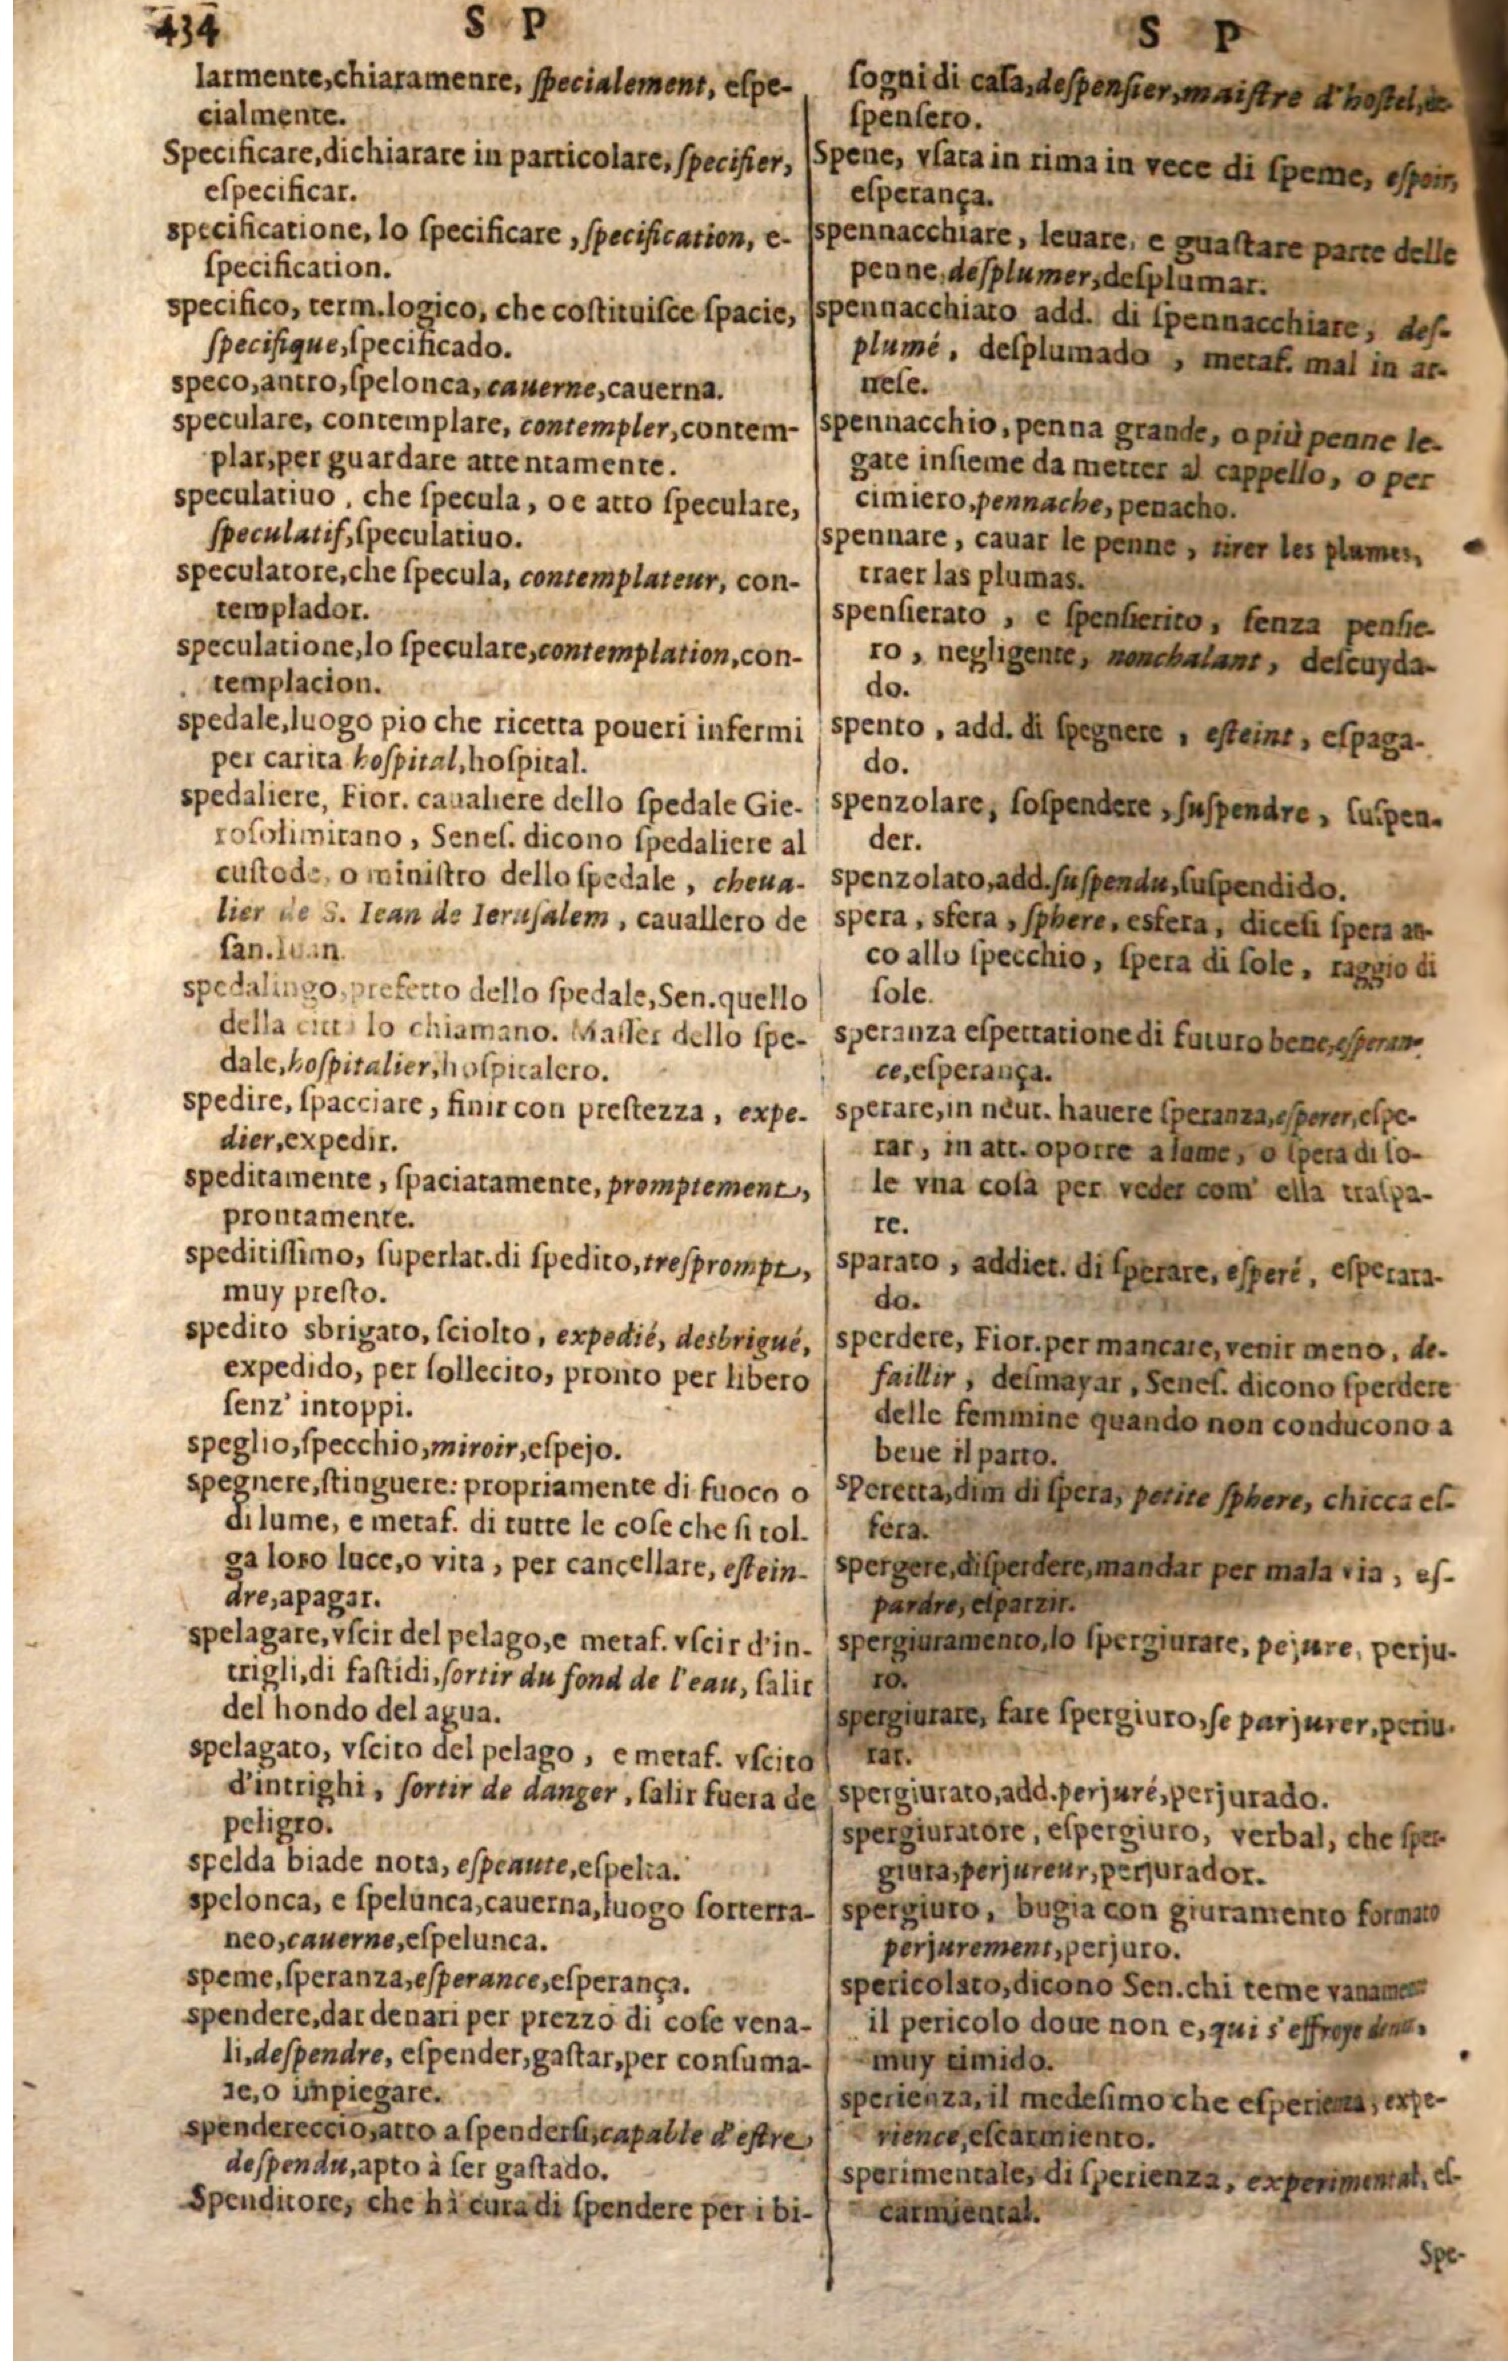 434
S P
larmente,chiaramenre, ſpecialement, eſpe-
cialmente.
Specificare,dichiarare in particolare, ſpecifier,
eſpecificar.
specificatione, lo ſpecificare, ſpecification, e-
ſpecification.
specifico, term.logico, che coſtituiſce ſpacie,
ſpecifique,ſpecificado.
speco,antro,ſpelonca,cauerne,cauerna.
speculare, contemplare, contempler,contem-
plar,per guardare attentamente.
speculatiuo, che ſpecula, o e atto ſpeculare,
ſpeculatif,ſpeculatiuo.
speculatore,che ſpecula, contemplateur, con-
templador.
speculatione,lo ſpeculare,contemplation,con-
templacion.
spedale,luogo pio che ricetta poueri infermi
per carita hoſpital,hoſpital.
spedaliere, Fior. caualiere dello ſpedale Gie-
roſolimitano, Seneſ. dicono ſpedaliere al
cuſtode, o miniſtro dello ſpedale, cheua-
lier de S. Iean de Ieruſalem, cauallero de
ſan.Iuan.
spedalingo,prefetto dello ſpedale,Sen.quello
della citta lo chiamano. Maſſer dello ſpe-
dale,hoſpitalier,hoſpitalero.
spedire, ſpacciare, finir con preſtezza, expe-
dier,expedir.
speditamente, ſpaciatamente, promptement,
prontamente.
speditiſſimo, ſuperlat.di ſpedito,treſprompt,
muy preſto.
spedito sbrigato, ſciolto, expedié, desbrigué,
expedido, per ſollecito, pronto per libero
ſenz' intoppi.
speglio,ſpecchio,miroir,eſpejo.
spegnere,ſtinguere: propriamente di fuoco o
di lume, e metaf. di tutte le coſe che ſi tol-
ga loro luce,o vita, per cancellare, eſtein-
dre,apagar.
spelagare,vſcir del pelago,e metaf. vſcir d'in-
trigli,di faſtidi,ſortir du fond de l'eau, ſalir
del hondo del agua.
spelagato, vſcito del pelago, e metaf. vſcito
d'intrighi, ſortir de danger, ſalir fuera de
peligro.
spelda biade nota, eſpeaute,eſpelta.
spelonca, e ſpelunca,cauerna,luogo ſotterra-
neo,cauerne,eſpelunca.
speme,ſperanza,eſperance,eſperança.
spendere,dar denari per prezzo di coſe vena-
li,deſpendre, eſpender,gaſtar,per conſuma-
re,o impiegare.
spendereccio,atto a ſpenderſi,capable d'eſtre
deſpendu,apto à ſer gaſtado.
Spenditore, che hà cura di ſpendere per i bi-
S P
ſogni di caſa,deſpenſier,maiſtre d'hoſtel,de-
ſpenſero.
Spene, vſata in rima in vece di ſpeme, eſpoir,
eſperança.
spennacchiare, leuare, e guaſtare parte delle
penne,deſplumer,deſplumar.
spennacchiato add. di ſpennacchiare, deſ-
plumé, deſplumado, metaf. mal in ar-
neſe.
spennacchio,penna grande, o più penne le-
gate inſieme da metter al cappello, o per
cimiero,pennache,penacho.
spennare, cauar le penne, tirer les plumes,
traer las plumas.
spenſierato, e ſpenſierito, ſenza penſie-
ro, negligente, nonchalant, deſcuyda-
do.
spento, add. di ſpegnere, eſteint, eſpaga-
do.
spenzolare, ſoſpendere, ſuſpendre, ſuſpen-
der.
spenzolato,add.ſuſpendu,ſuſpendido.
spera, sfera, ſphere, esfera, diceſi ſpera an-
co allo ſpecchio, ſpera di ſole, raggio di
ſole.
speranza eſpettatione di futuro bene,eſperan-
ce,eſperança.
sperare,in neut. hauere ſperanza,eſperer,eſpe-
rar, in att. oporre a lume, o ſpera di ſo-
le vna coſa per veder com' ella traſpa-
re.
sparato, addiet. di ſperare, eſperé, eſperata-
do.
sperdere, Fior.per mancare,venir meno, de-
faillir, deſmayar, Seneſ. dicono ſperdere
delle femmine quando non conducono a
bene il parto.
speretta,dim di ſpera, petite ſphere, chicca eſ-
fera.
spergere,diſperdere,mandar per mala via, eſ-
pardre,eſparzir.
spergiuramento,lo ſpergiurare, pejure, perju-
ro.
spergiurare, fare ſpergiuro,ſe parjurer,periu-
rar.
spergiurato,add.perjuré,perjurado.
spergiuratore, eſpergiuro, verbal, che ſper-
giura,perjureur,perjurador.
spergiuro, bugia con giuramento formato
perjurement,perjuro.
spericolato,dicono Sen.chi teme
il pericolo doue non e,qui s'effroye
muy timido.
sperienza, il medeſimo che eſperienza, expe-
rience,eſcarmiento.
sperimentale, di ſperienza, experimental, eſ-
carmiental.
Spe-